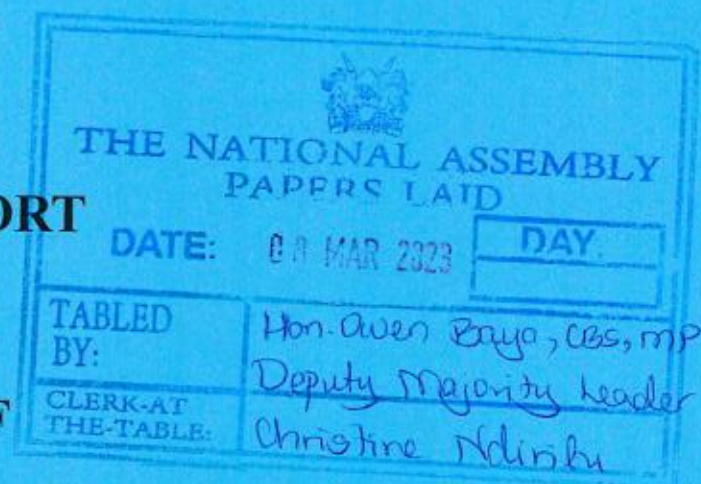 THE NATIONAL ASSEMBLY
PAPERS LAID
ORT
DATE: MAR 2023
DAY.
TABLED
BY:
Hon. Owen Baya, CBS, MP
Deputy Majority Leader
CLERK-AT
THE-TABLE:
Christine
F